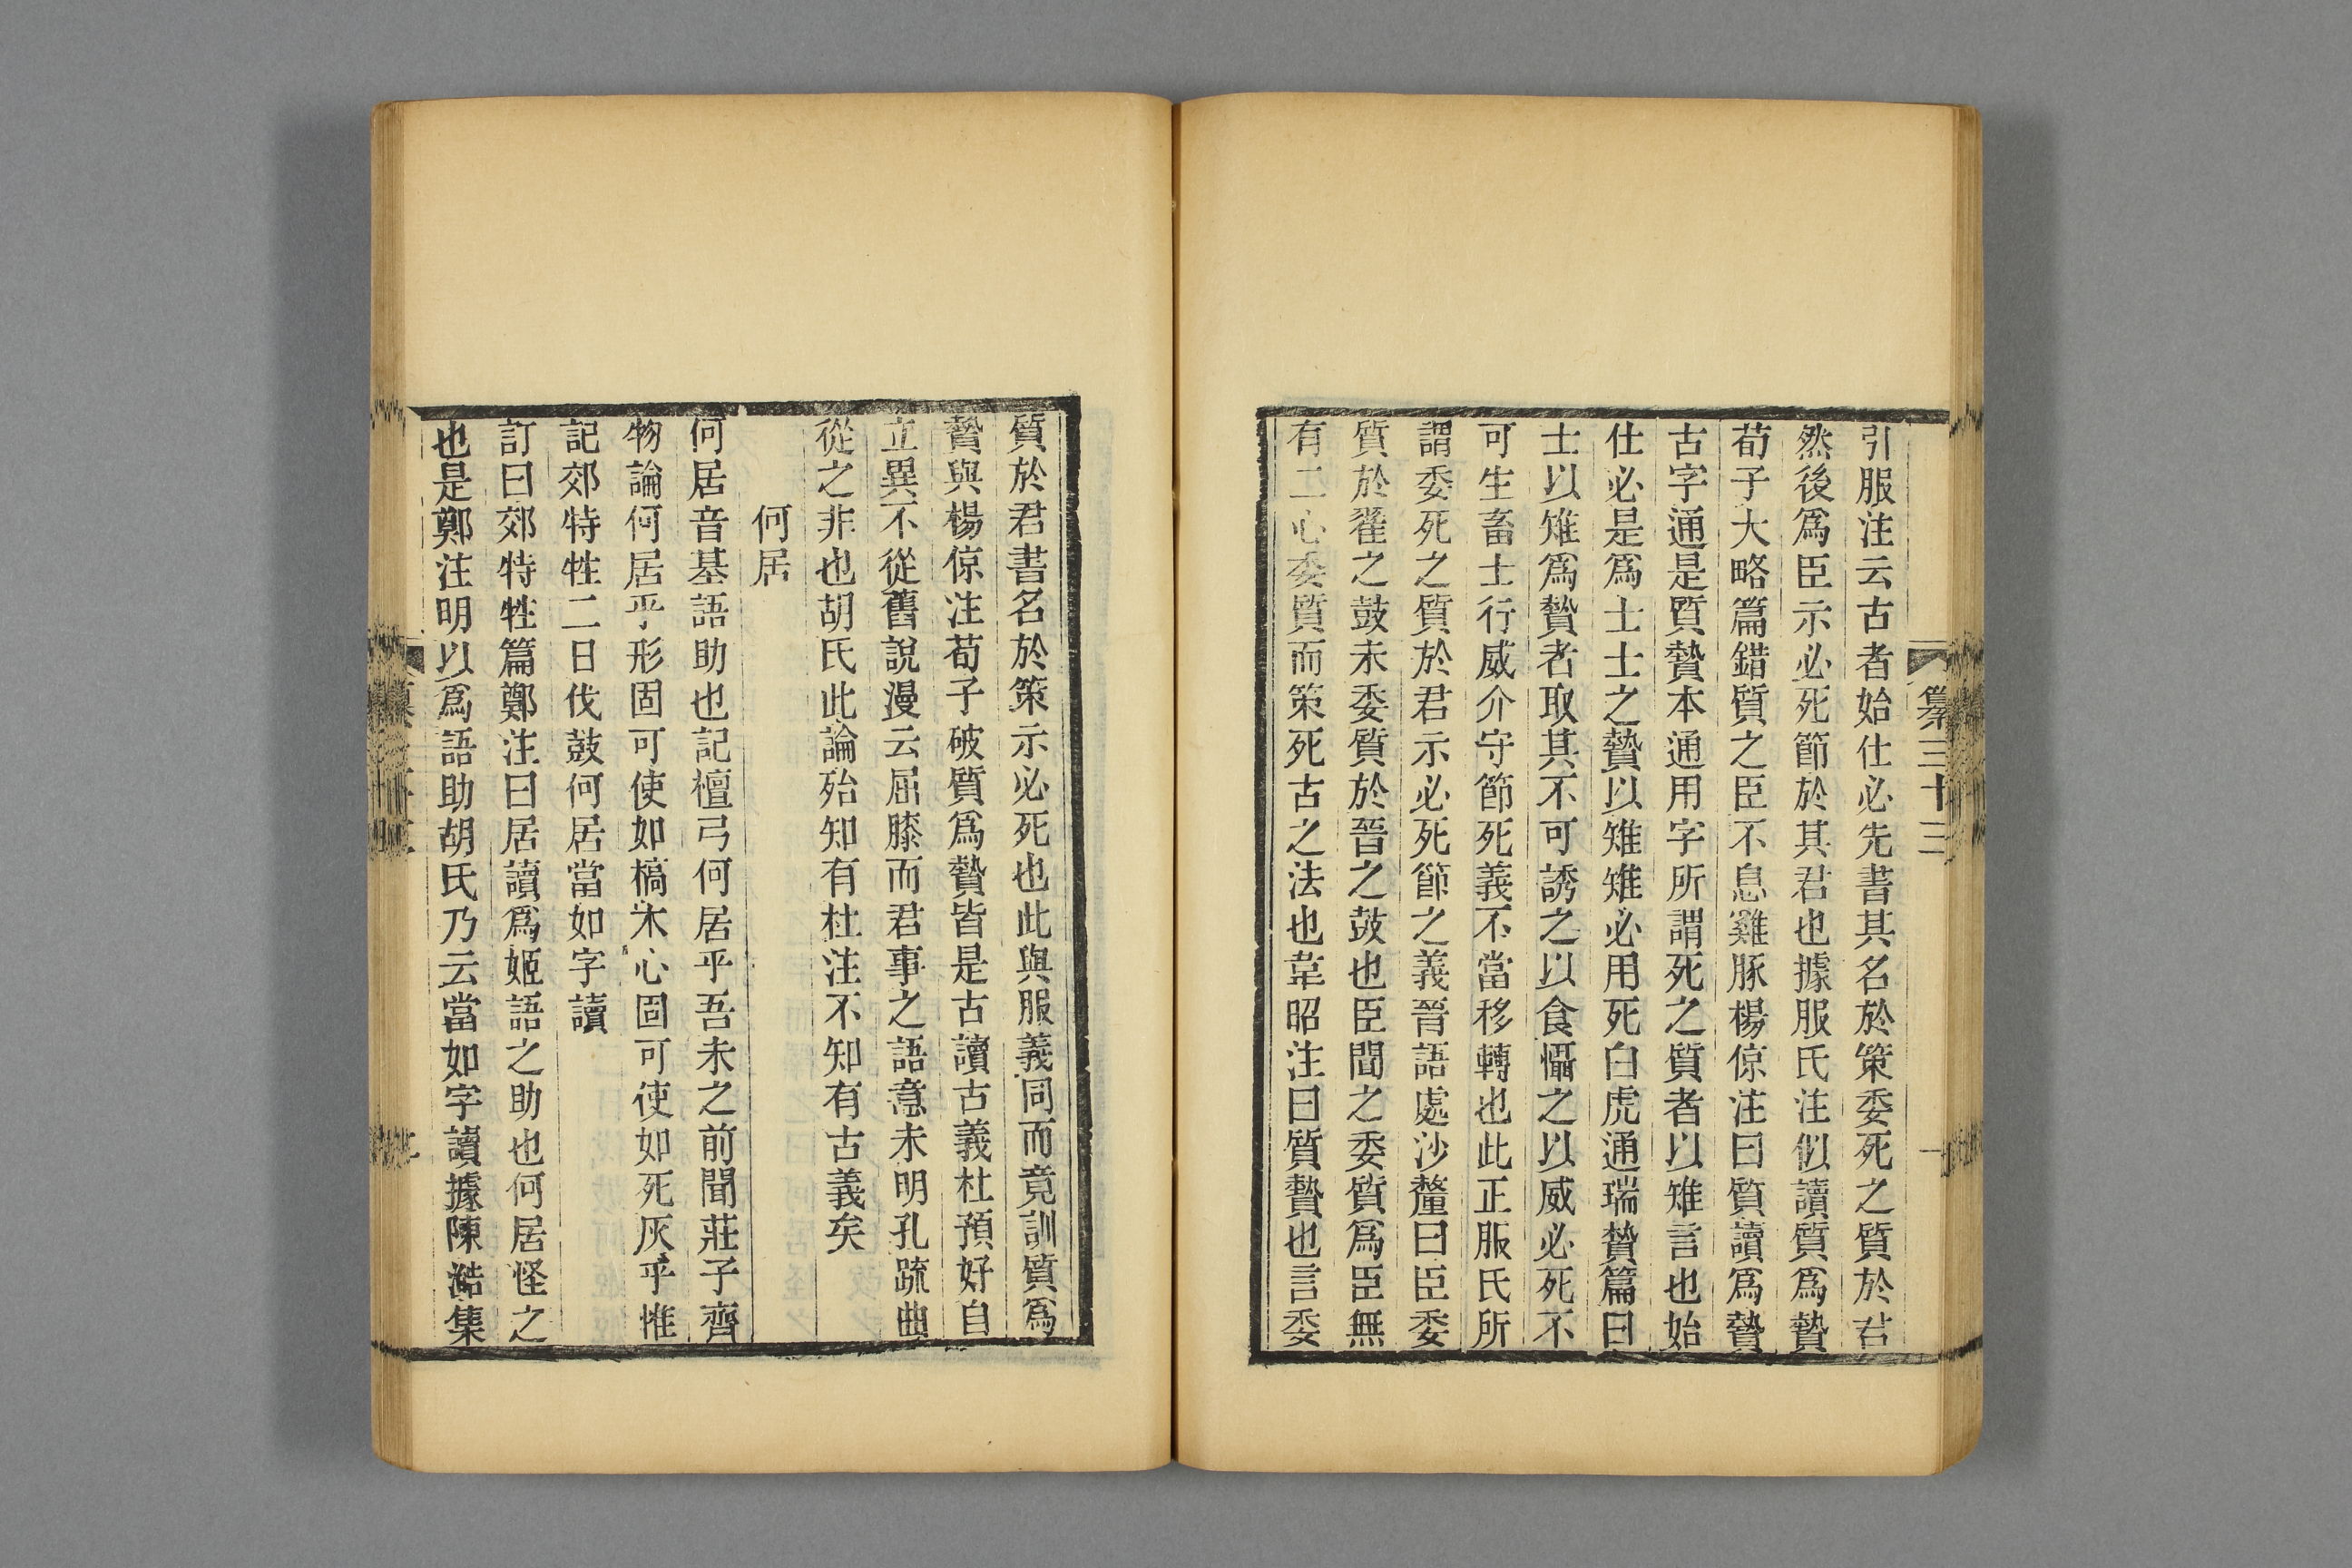 纂三十三
引服注云古者始仕必先書其名於策委死之質於君
然後爲臣示必死節於其君也據服氏注似讀質爲贄
荀子大略篇錯質之臣不息雞豚楊倞注曰質讀爲贄
古字通是質贄本通用字所謂死之質者以雉言也始
仕必是爲士士之贄以雉雉必用死白虎通瑞贄篇曰
士以雉爲贄者取其不可誘之以食懾之以威必死不
可生畜士行威介守節死義不當移轉也此正服氏所
謂委死之質於君示必死節之義晉語處沙釐曰臣委
質於翟之鼓未委質於晉之鼓也臣聞之委質爲臣無
有二心委質而策死古之法也韋昭注曰質贄也言委
質於君書名於策示必死也此與服義同而竟訓質爲
贄與楊倞注荀子破質爲贄皆是古讀古義杜預好自
立異不從舊說漫云屈膝而君事之語意未明孔疏曲
從之非也胡氏此論殆知有杜注不知有古義矣
何居
何居音基語助也記檀弓何居乎吾未之前聞莊子齊
物論何居乎形固可使如槁木心固可使如死灰乎惟
記郊特牲二日伐鼓何居當如字讀
訂曰郊特牲篇鄭注曰居讀爲姬語之助也何居怪之
也是鄭注明以爲語助胡氏乃云當如字讀據陳澔集